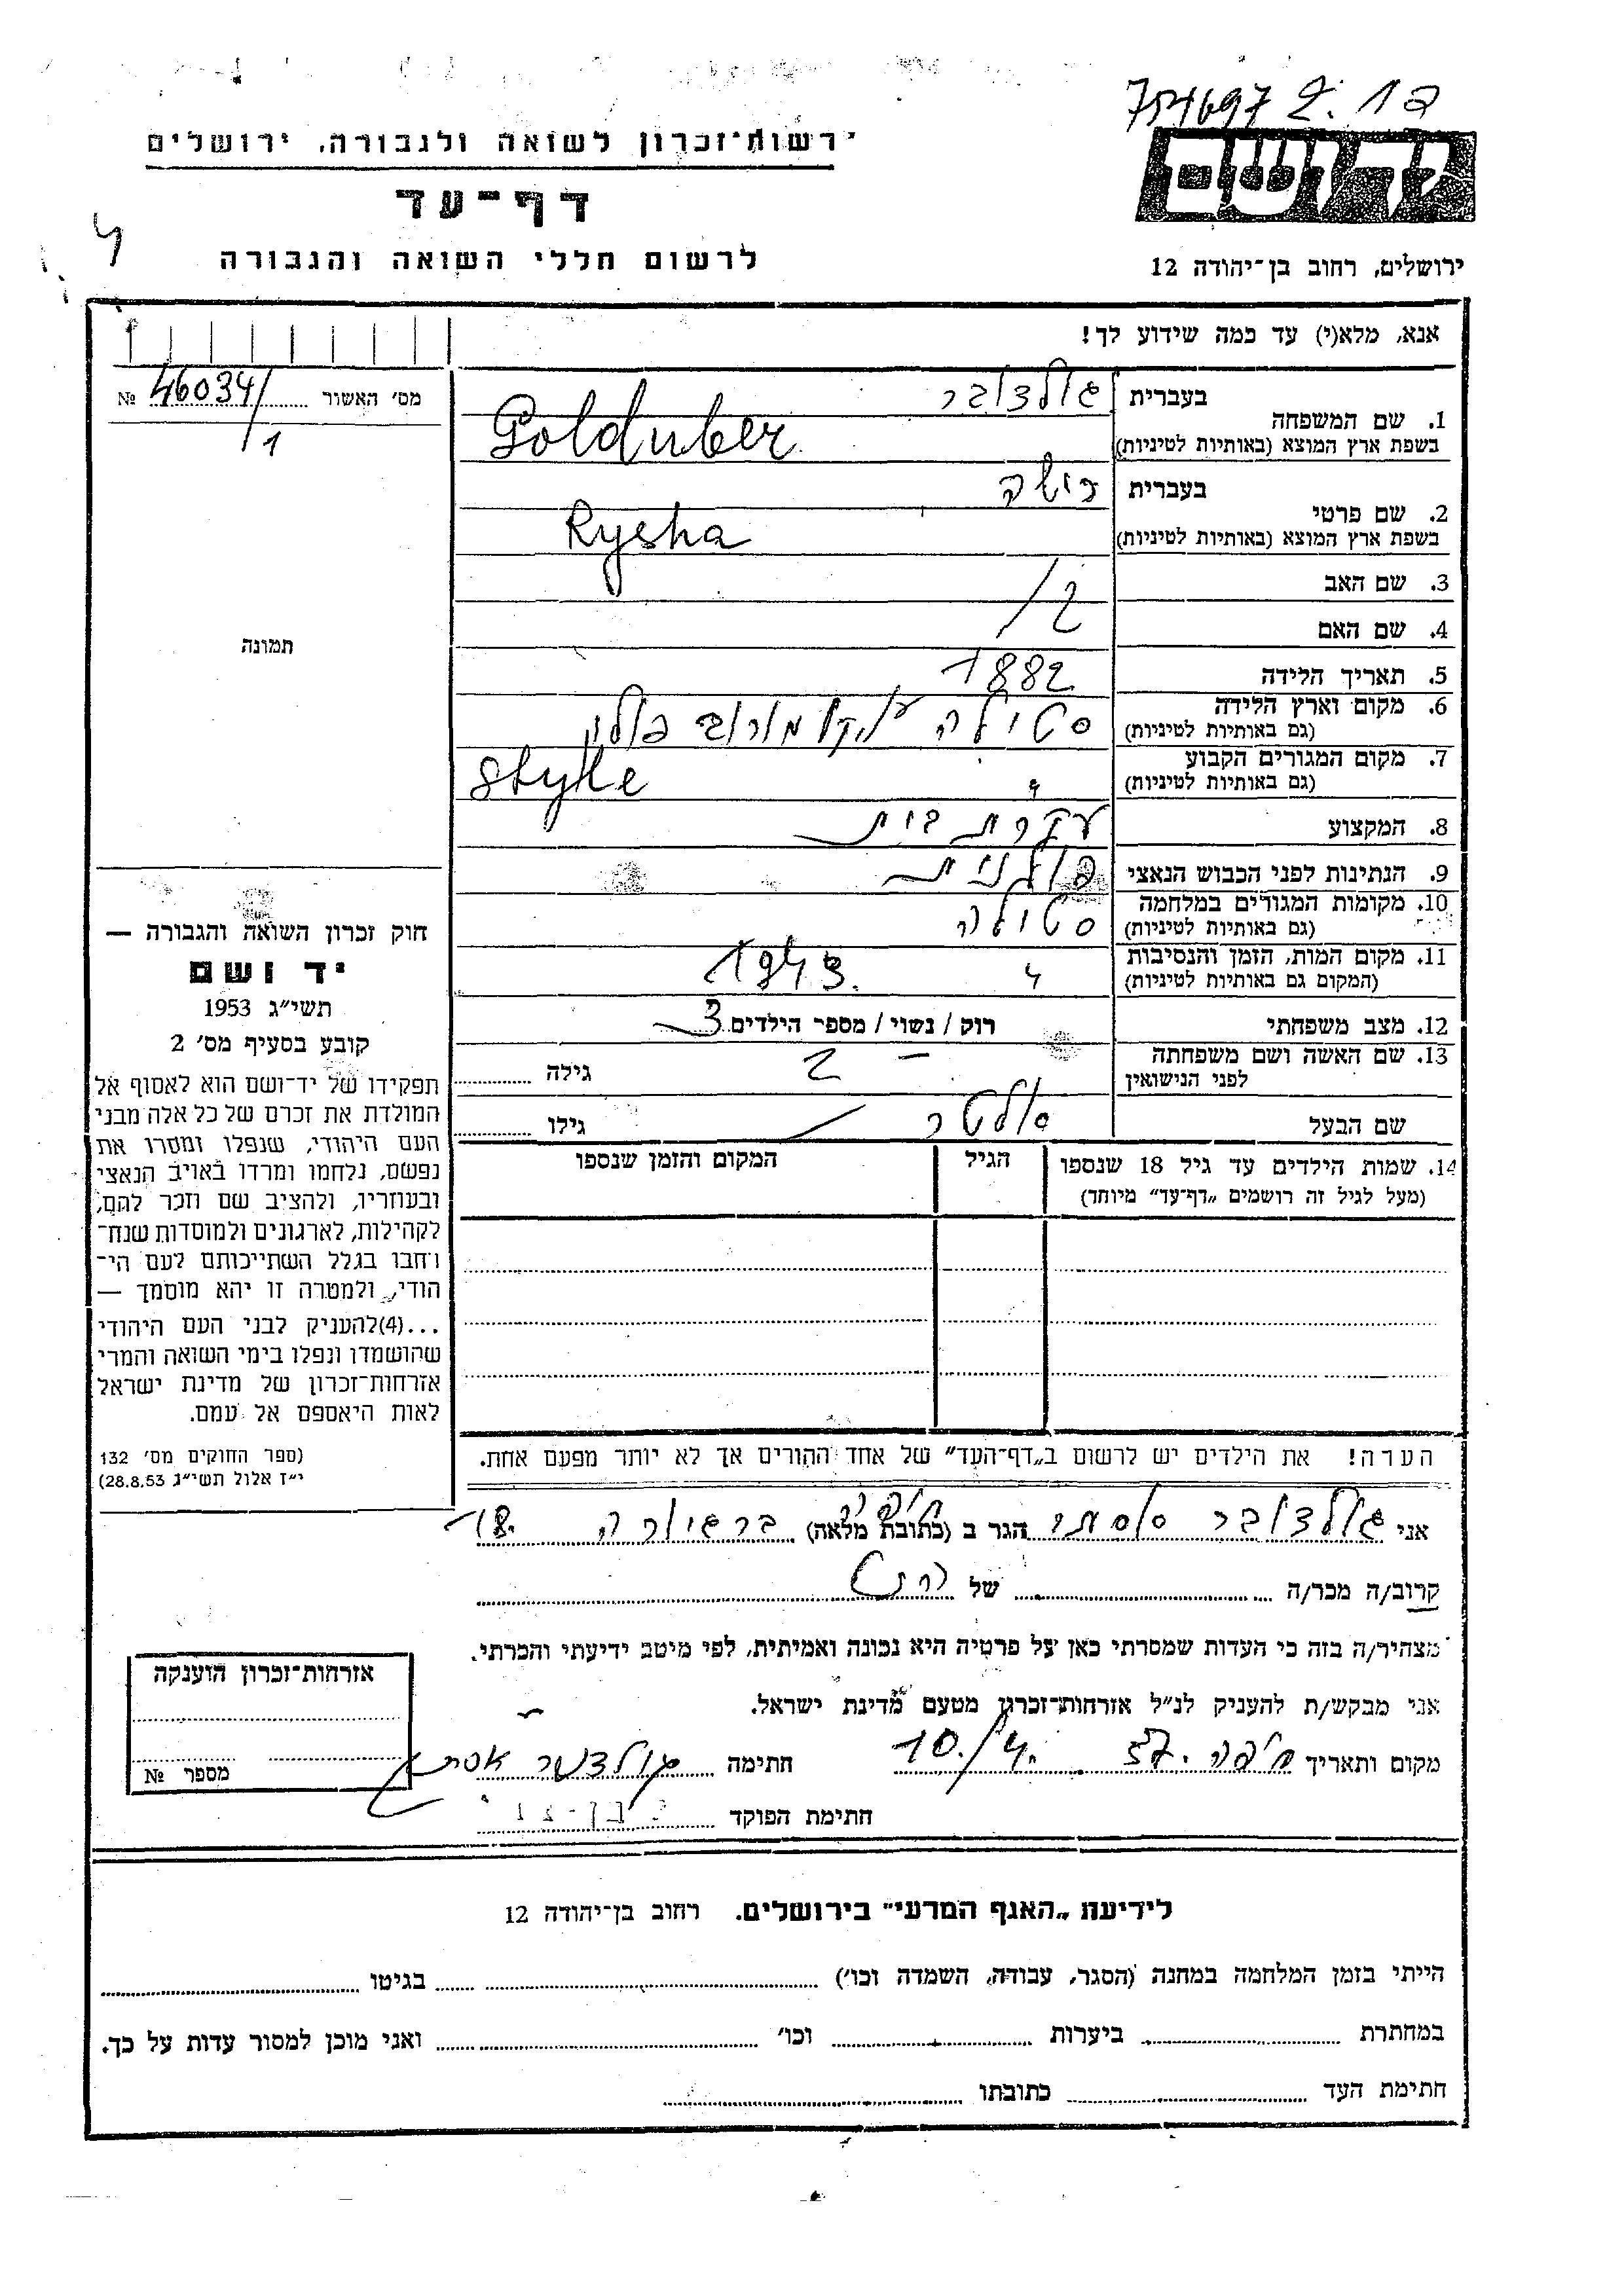 754697 .12
ידושם
רשות־זכרון לשואה ולגבורה, ירושלים
דף־עד
לרשום חללי השואה והגבורה
ירושלים, רחוב בן־יהודה 12
אנא, מלא(י) עד כמה שידוע לך!
מס׳ האשור 46034/1 №
תמונה
1. שם המשפחה
בעברית גולצובר
בשפת ארץ המוצא (באותיות לטיניות) Golduber
2. שם פרטי
בעברית רישה
בשפת ארץ המוצא (באותיות לטיניות) Rysha
3. שם האב
4. שם האם
5. תאריך הלידה 1882
6. מקום וארץ הלידה סטילה פולין
(גם באותיות לטיניות)
7. מקום המגורים הקבוע " Stylle
(גם באותיות לטיניות)
8. המקצוע עקרת בית
9. הנתינות לפני הכבוש הנאצי פולנית
10. מקומות המגורים במלחמה סטילה
(גם באותיות לטיניות)
11. מקום המות, הזמן והנסיבות " 1943.
(המקום גם באותיות לטיניות)
12. מצב משפחתי רוק / נשוי / מספר הילדים 3
13. שם האשה ושם משפחתה גילה
לפני הנישואין
שם הבעל גילו
14. שמות הילדים עד גיל 18 שנספו הגיל המקום והזמן שנספו
(מעל לגיל זה רושמים „דף־עד״ מיוחד)
הערה! את הילדים יש לרשום ב„דף־העד״ של אחד ההורים אך לא יותר מפעם אחת.
חוק זכרון השואה והגבורה —
יד ושם
תשי״ג 1953
קובע בסעיף מס׳ 2
תפקידו של יד־ושם הוא לאסוף אל
המולדת את זכרם של כל אלה מבני
העם היהודי, שנפלו ומסרו את
נפשם, נלחמו ומרדו באויב הנאצי
ובעוזריו, ולהציב שם וזכר להם,
לקהילות, לארגונים ולמוסדות שנח־
רחבו בגלל השתייכותם לעם הי־
הודי, ולמטרה זו יהא מוסמך —
...(4)להעניק לבני העם היהודי
שהושמדו ונפלו בימי השואה והמרי
אזרחות־זכרון של מדינת ישראל
לאות היאספם אל עמם.
(ספר החוקים מס׳ 132
י״ז אלול תשי״ג 28.8.53)
אני גולצובר אסתר הגר ב (כתובת מלאה) חיפה 18
קרוב/ה מכר/ה של
מצהיר/ה בזה כי העדות שמסרתי כאן על פרטיה היא נכונה ואמיתית, לפי מיטב ידיעתי והכרתי.
אני מבקש/ת להעניק לנ״ל אזרחות־זכרון מטעם מדינת ישראל.
מקום ותאריך חיפה 57. 10./4. חתימה גולצובר אסתר
חתימת הפוקד
אזרחות־זכרון הוענקה
מספר №
לידיעת „האגף המדעי״ בירושלים. רחוב בן־יהודה 12
הייתי בזמן המלחמה במחנה (הסגר, עבודה, השמדה וכו׳) בגיטו
במחתרת ביערות וכו׳ ואני מוכן למסור עדות על כך.
חתימת העד כתובתו